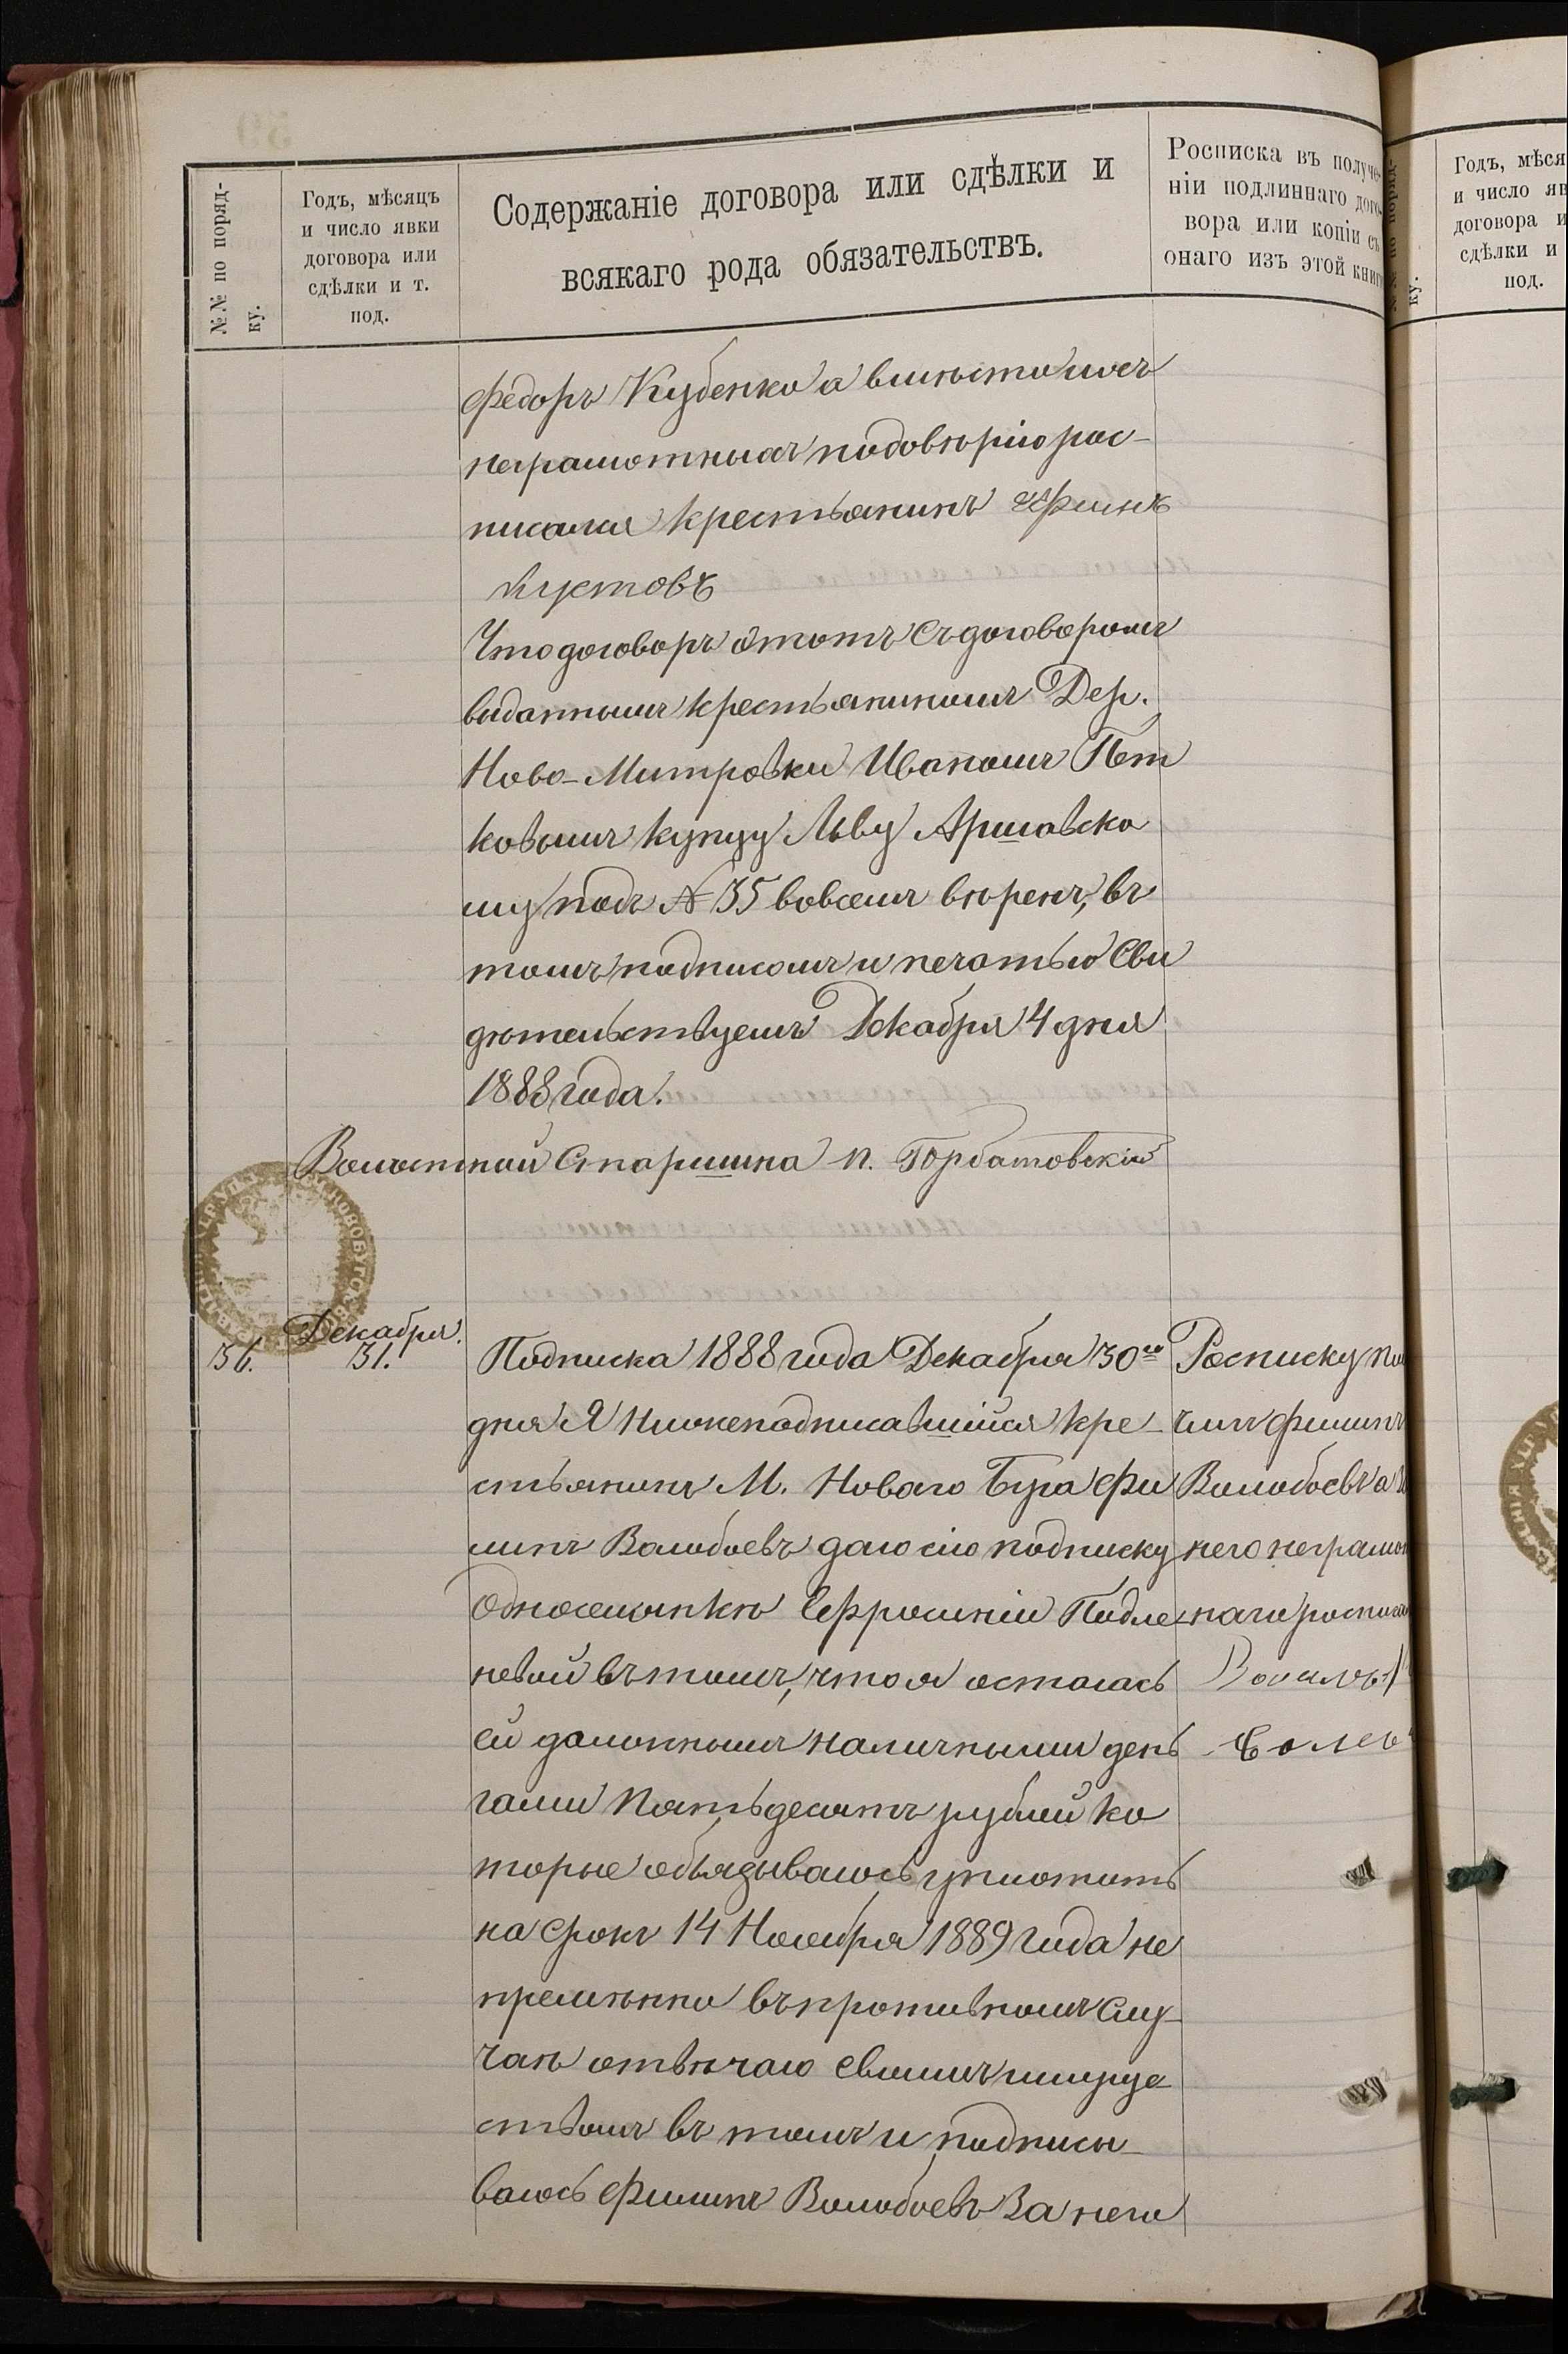 №№ по поряд-
ку.
Годъ, мѣсяцъ
и число явки
договора или
сдѣлки и т.
под.
Содержаніе договора или сдѣлки и
всякаго рода обязательствъ.
Росписка въ получе-
ніи подлиннаго дого-
вора или копіи съ
онаго изъ этой книги
Федоръ Кубенко а вмѣсто ихъ
неграмотныхъ подовѣрію рас-
писался крестьянинъ
Кустовъ
Что договоръ этотъ съ договоромъ
выданнымъ крестьяниномъ Дер.
Ново-Митровки Иваномъ Пет
ковымъ купцу Льву Аршавско
му подъ № 35 вовсемъ вѣренъ, въ
томъ подписомъ и печатью Сви
дѣтельствуемъ Декабря 4 дня
1888 года.
Волостной Старшина П. Горбатовскій
36.
Декабря
31.
Подписка 1888 года Декабря 30го
дня Я нижеподписавшійся кре-
стьянинъ М. Новаго Буга Фи
липъ Волобоевъ даю сію подписку
Односелькѣ Ефросиніи Подле
невой въ томъ, что я осталась
ей должнымъ наличными день
гами Пятьдесятъ рублей ко
торые обьязываюсь уплотить
на срокъ 14 Ноября 1889 года не
премѣнно въ противномъ слу-
чаѣ отвѣчаю своимъ имуще
ствомъ въ томъ и подписы-
ваюсь Филипъ Волобоевъ За него
Росписку по
чилъ Филипъ
Волобоевъ а
него неграмот
наго росписа
Годъ, мѣся
и число яв
договора и
сдѣлки и
под.
ку.